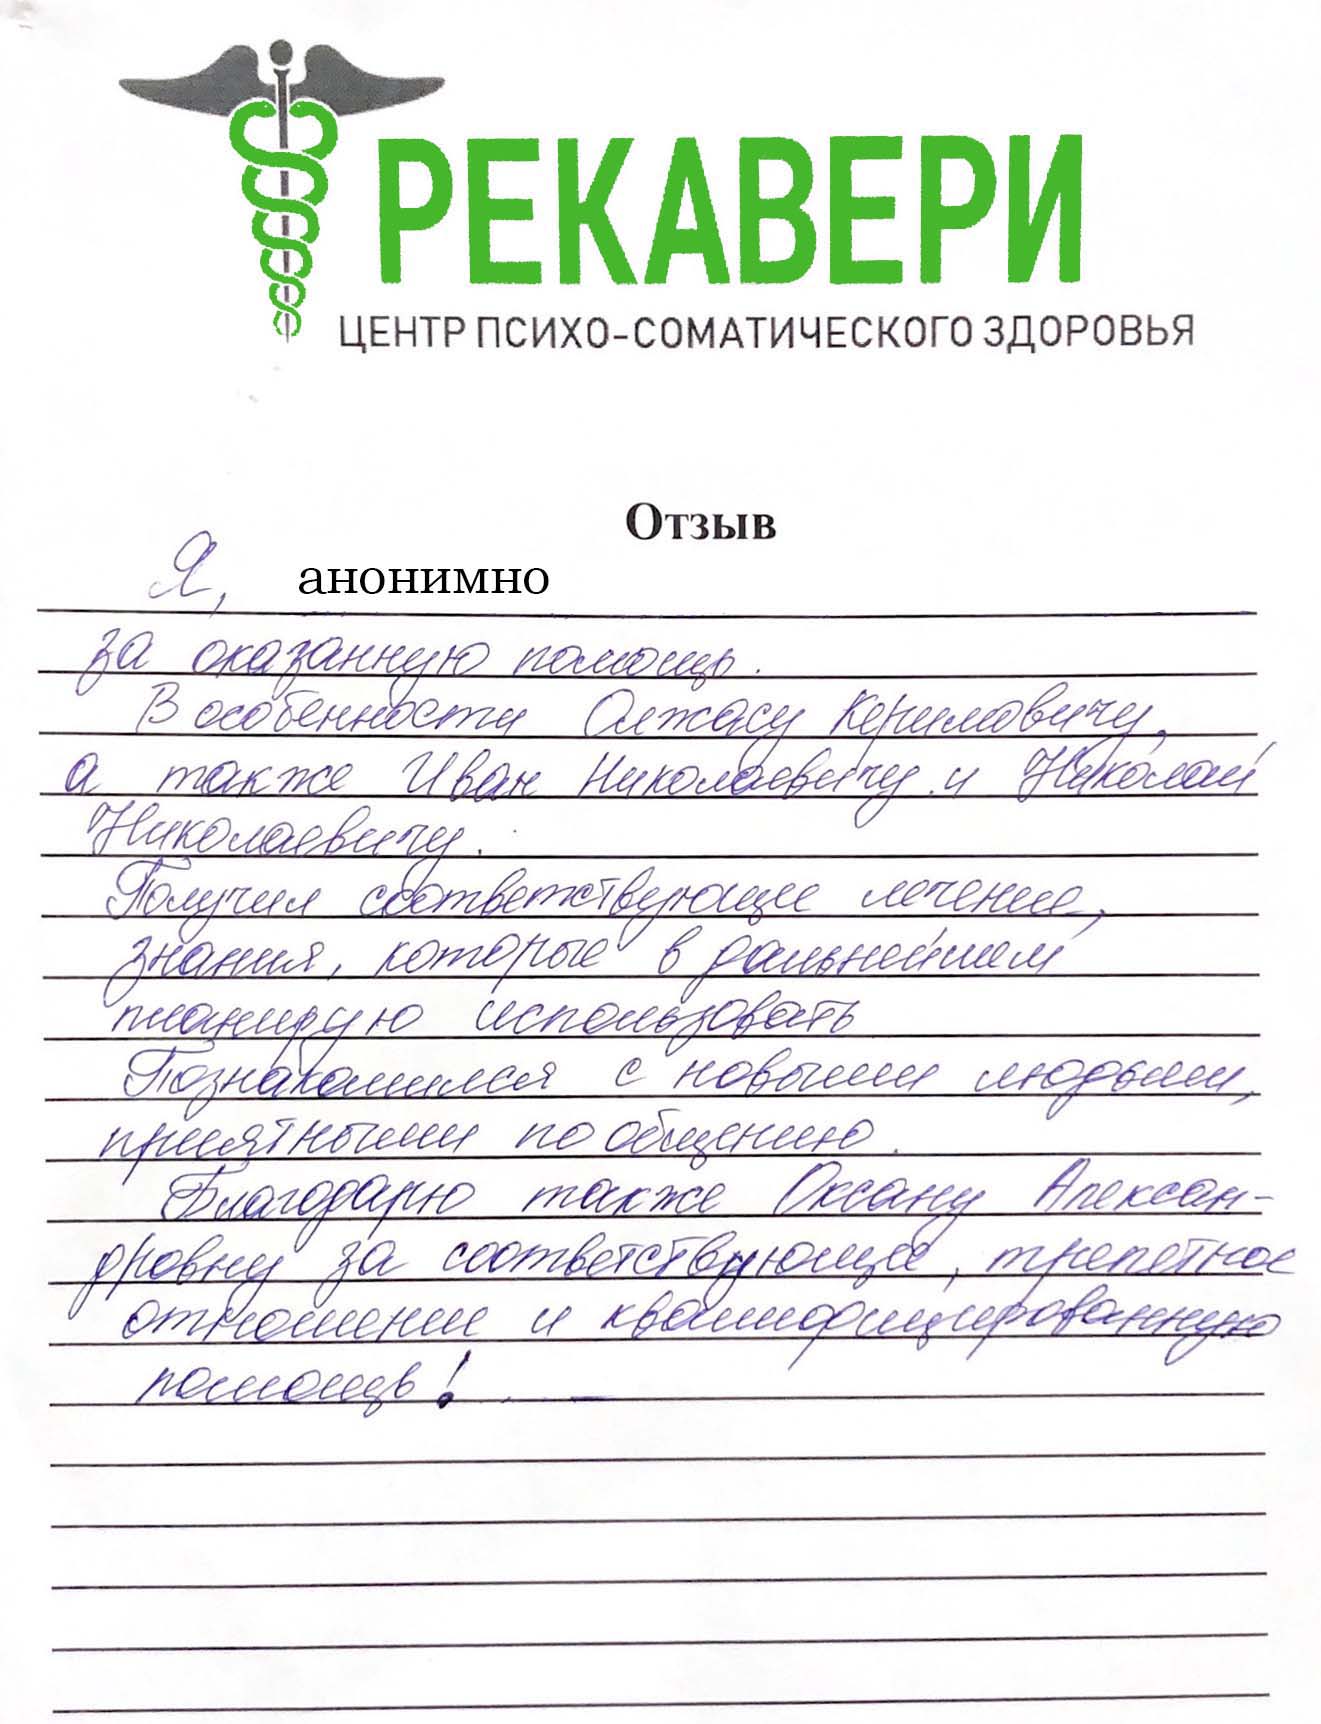 РЕКАВЕРИ
ЦЕНТР ПСИХО-СОМАТИЧЕСКОГО ЗДОРОВЬЯ
Отзыв
Я, анонимно
за оказанную помощь.
В особенности Олжасу Керимовичу,
а также Иван Николаевичу и Николай
Николаевичу.
Получил соответствующее лечение,
знания, которые в дальнейшем
планирую использовать
Познакомился с новыми людьми,
приятными по общению.
Благодарю также Оксану Алексан-
дровну за соответствующее, трепетное
отношение и квалифицированную
помощь!